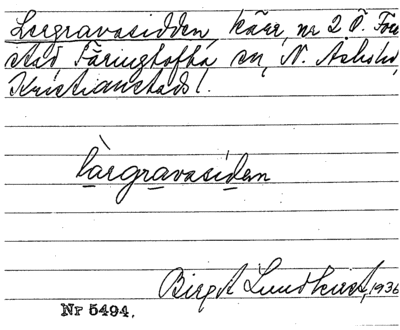 Lergravasidden, kärr, nr 2 Ö. Fore
stad, Färingtofta sn, N. Åsbo hd,
Kristianstads l.
làrgravasíden
Birgit Lundkvist, 1936
Nr 5494.